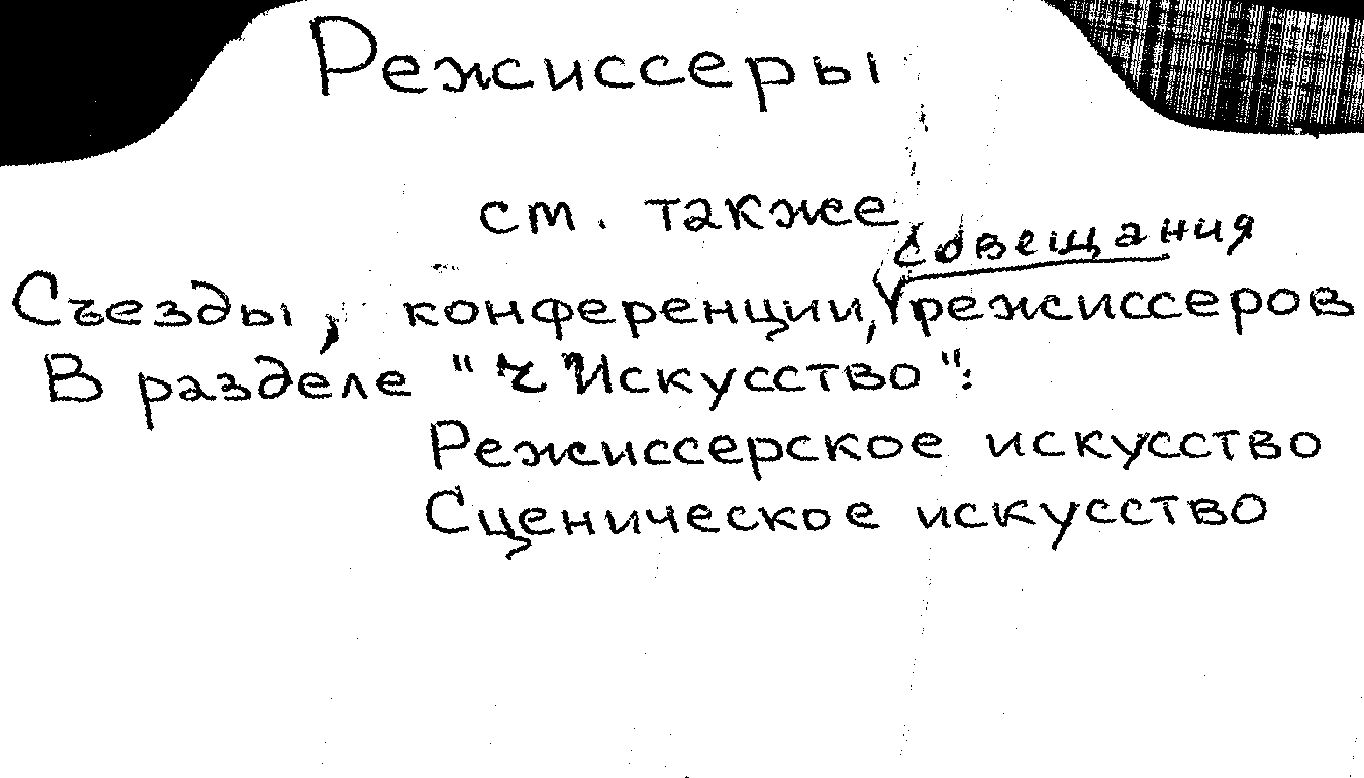 Режиссеры
см. также
Съезды, конференции, совещания режиссеров
В разделе "Искусство":
Режиссерское искусство
Сценическое искусство